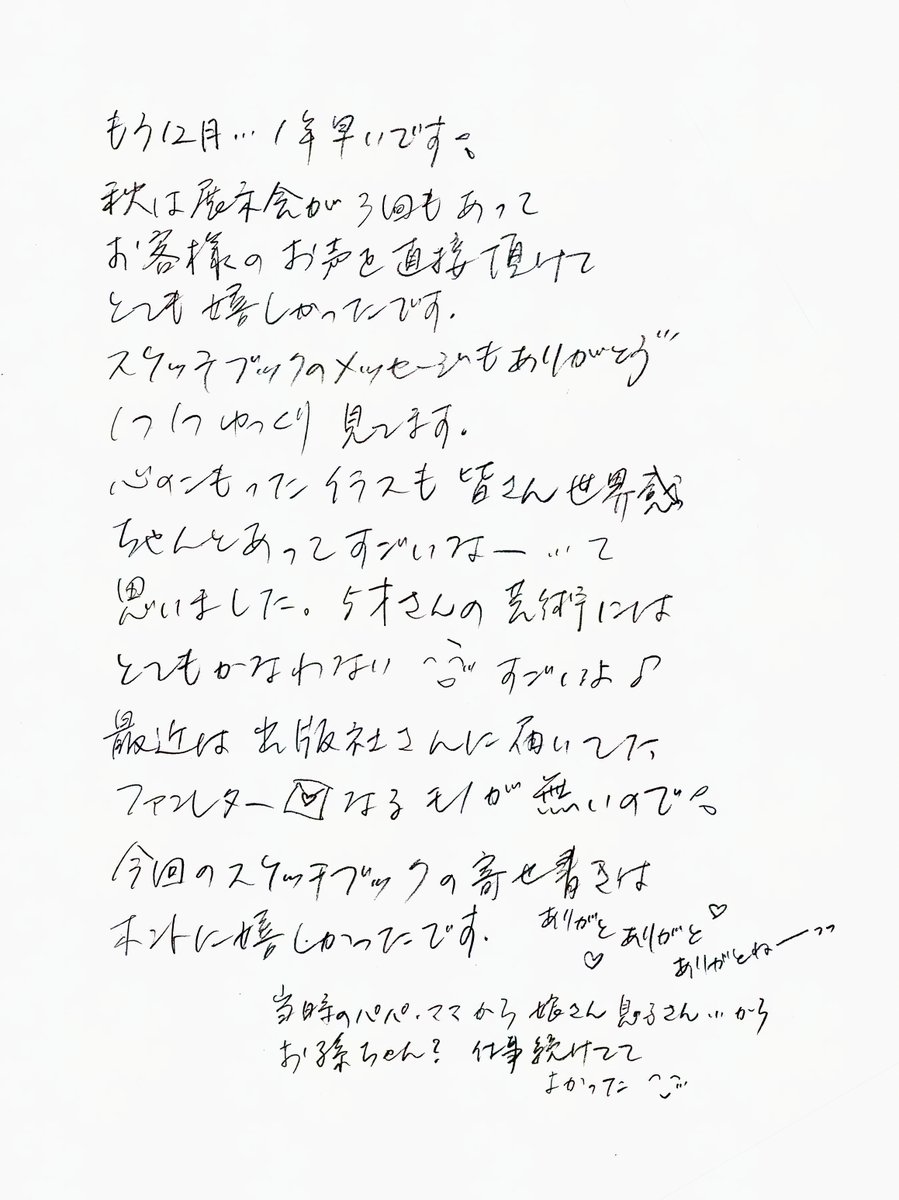 もう12月…1年早いです。
秋は展示会が3回もあって
お客様のお声を直接頂けて
とても嬉しかったです.
スケッチブックのメッセージもありがとう
1つ1つゆっくり見てます.
心のこもったイラスも皆さん世界感
ちゃんとあってすごいなー…て
思いました。5才さんの芸術には
とてもかなわない すごいよ♪
最近は出版社さんに届いてた
ファンレター♡なるモノが無いので。
今回のスケッチブックの寄せ書きは
ホントに嬉しかったです.
ありがと♡ありがと♡
ありがとねーっっ
当時のパパ・ママから娘さん息子さん…から
お孫ちゃん? 仕事続けてて
よかった